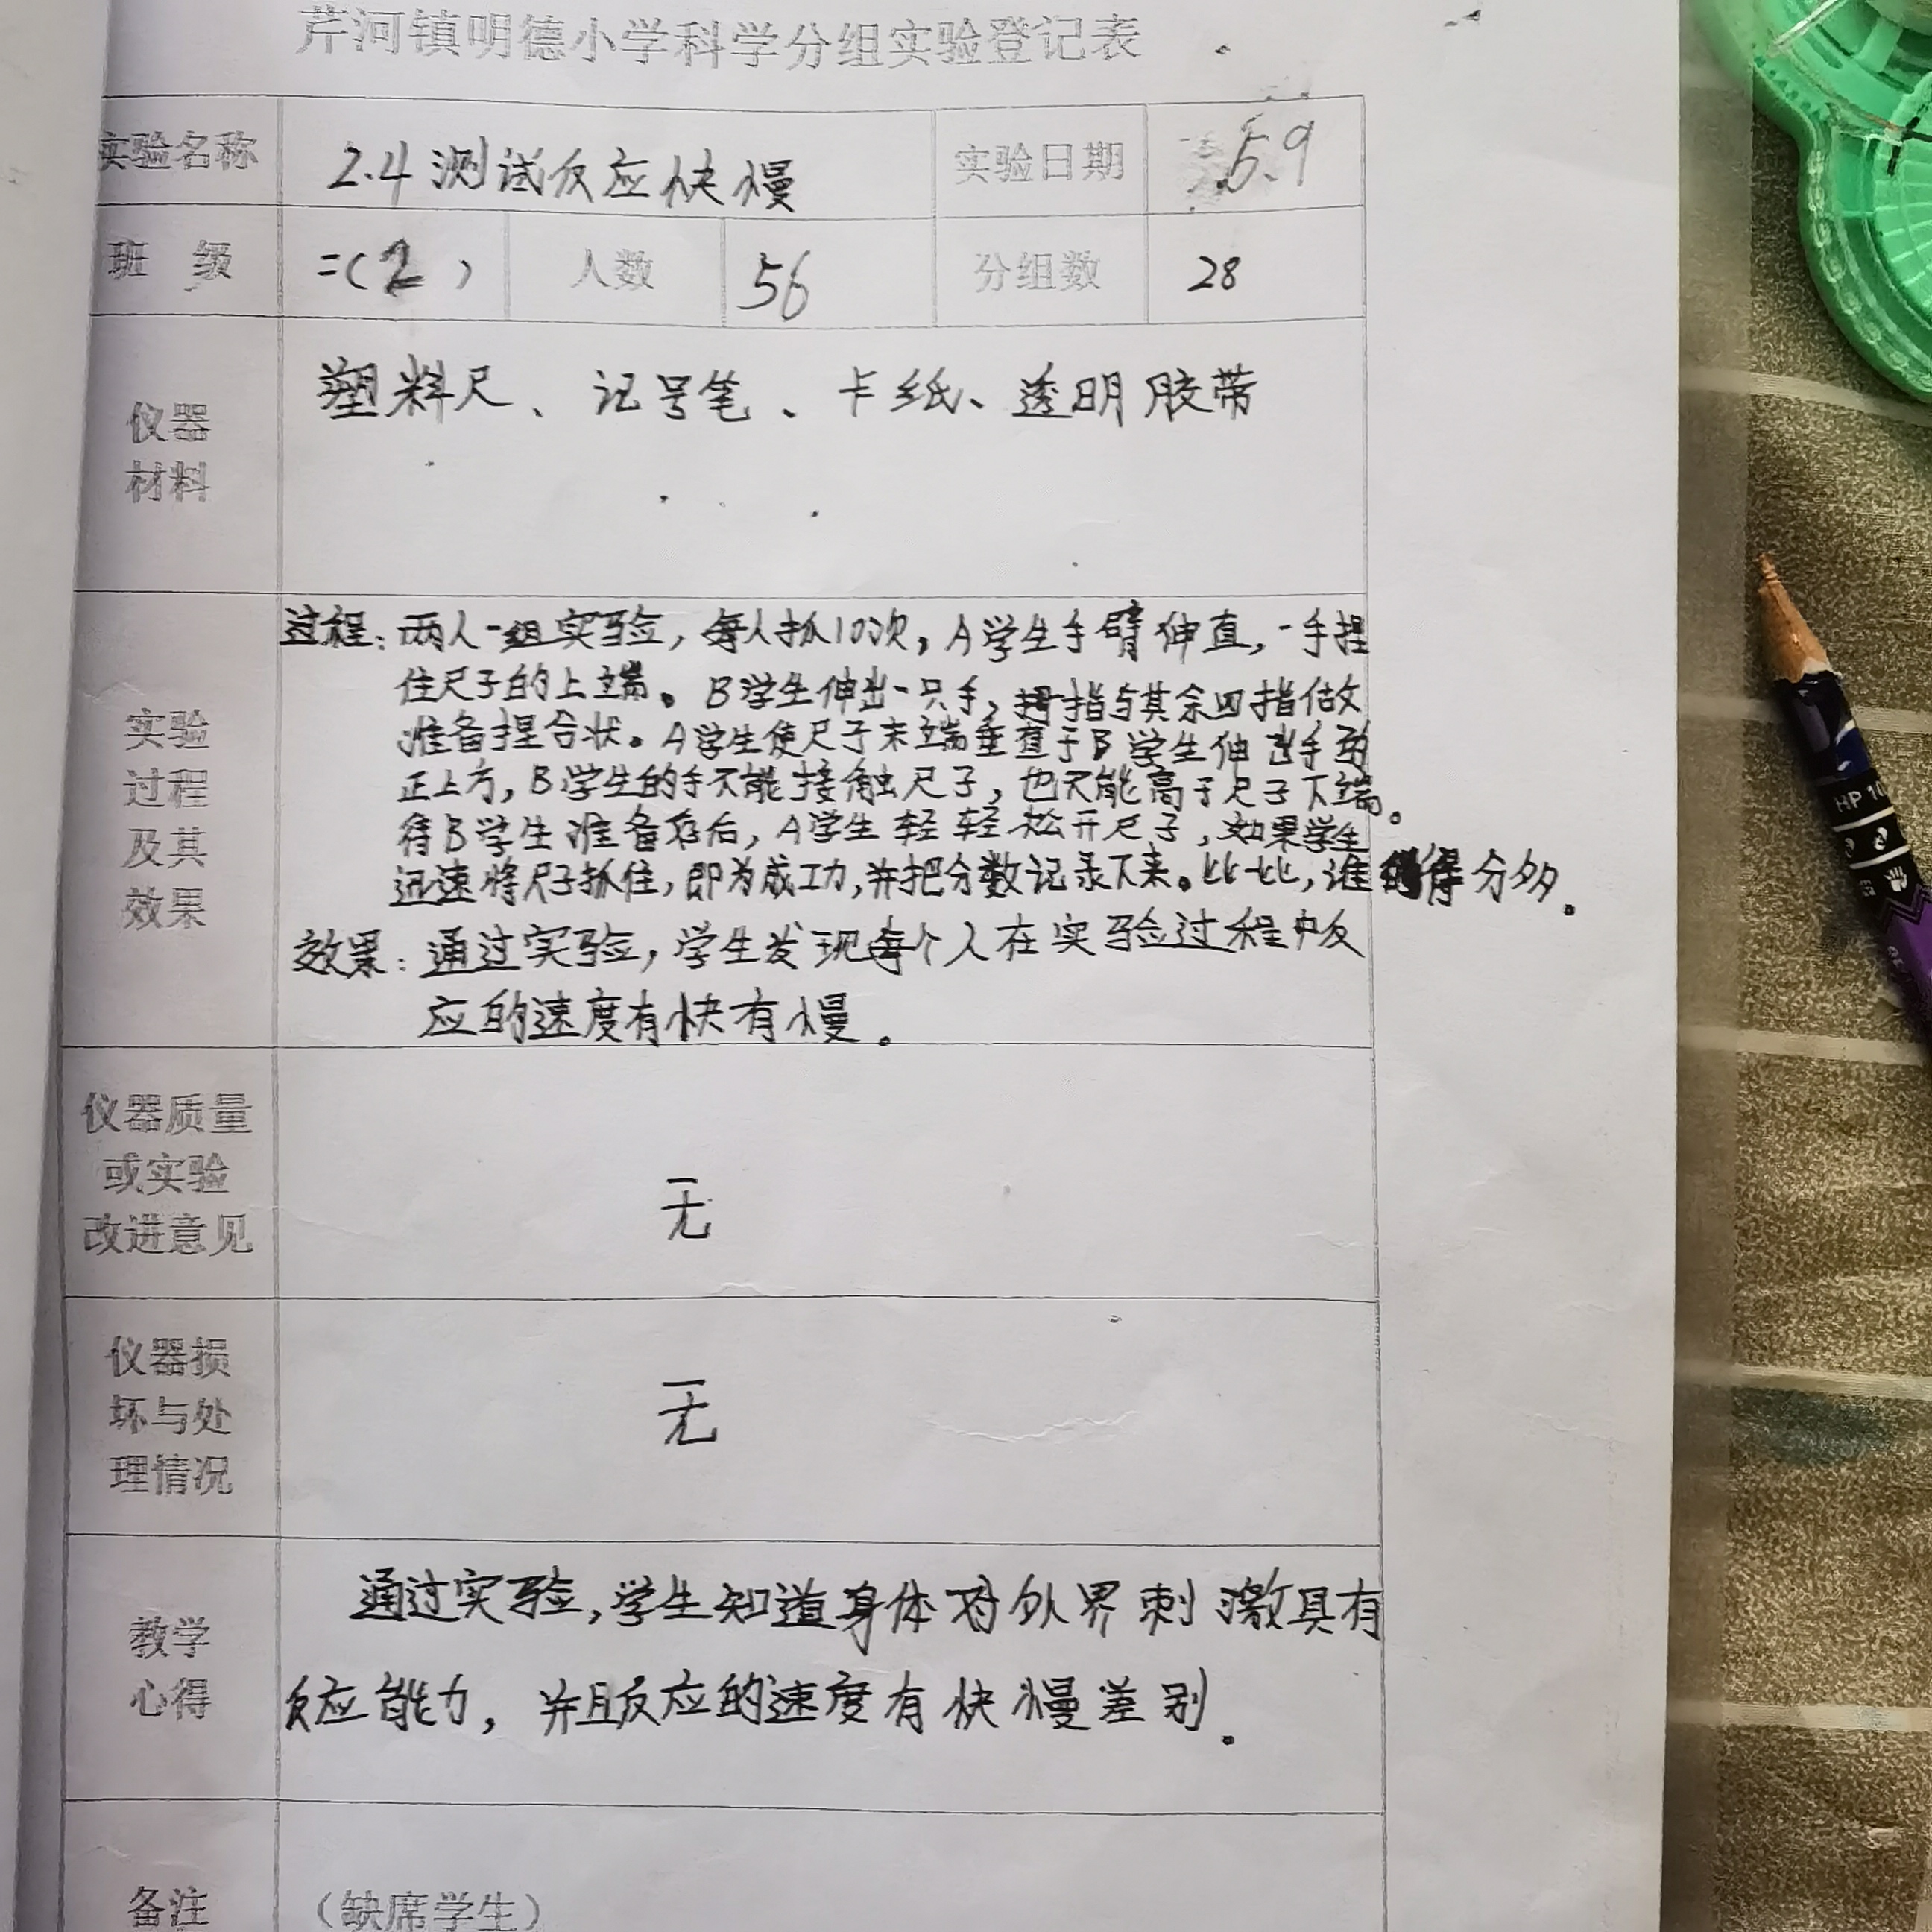 芹河镇明德小学科学分组实验登记表
实验名称 2.4 测试反应快慢 实验日期 5.9
班 级 二(2) 人数 56 分组数 28
仪器
材料
塑料尺、记号笔、卡纸、透明胶带
实验
过程
及其
效果
过程:两人一组实验,每人抓10次,A学生手臂伸直,一手捏
住尺子的上端。B学生伸出一只手,拇指与其余四指做
准备捏合状。A学生使尺子末端垂直于B学生伸出手的
正上方,B学生的手不能接触尺子,也不能高于尺子下端。
待B学生准备好后,A学生轻轻松开尺子,如果学生
迅速将尺子抓住,即为成功,并把分数记录下来。比一比,谁得分多。
效果:通过实验,学生发现每个人在实验过程中反
应的速度有快有慢。
仪器质量
或实验
改进意见
无
仪器损
坏与处
理情况
无
教学
心得
通过实验,学生知道身体对外界刺激具有
反应能力,并且反应的速度有快慢差别。
备注 (缺席学生)
HP 10